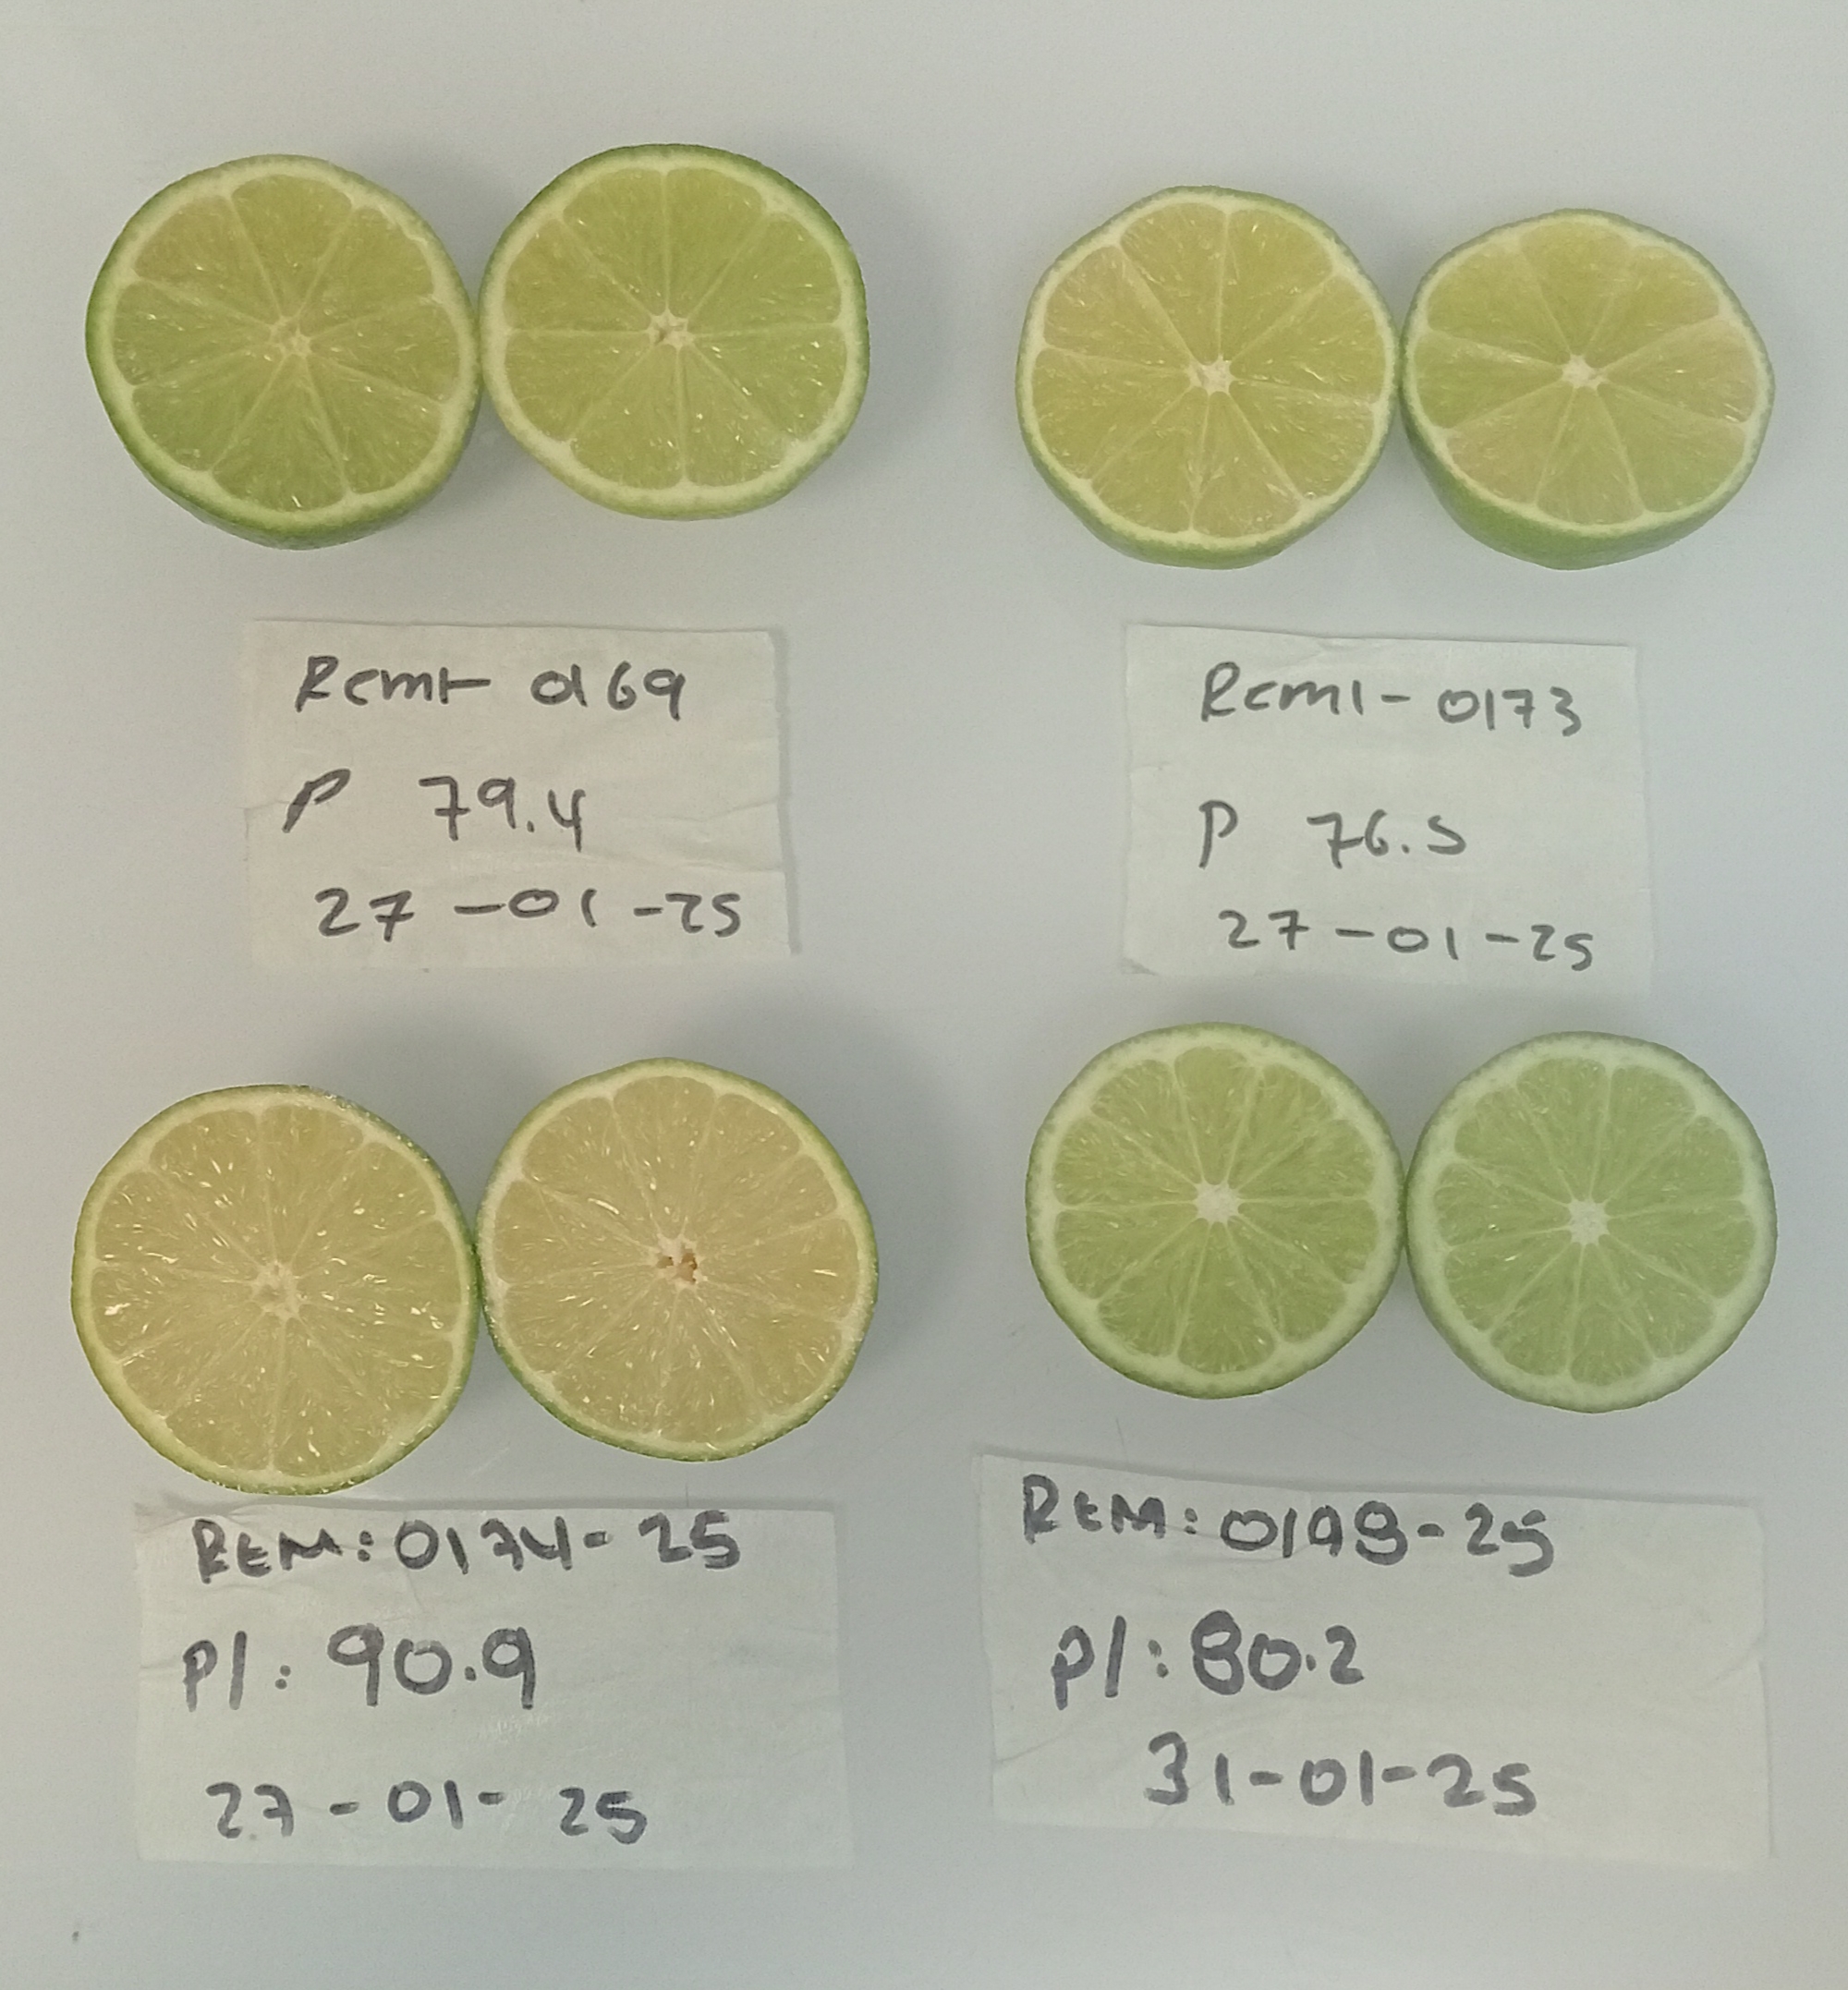 Remi- 0169
P 79.4
27-01-25
Remi-0173
P 76.5
27-01-25
REM: 0174-25
P/: 90.9
27-01-25
REM: 0198-25
P/: 80.2
31-01-25